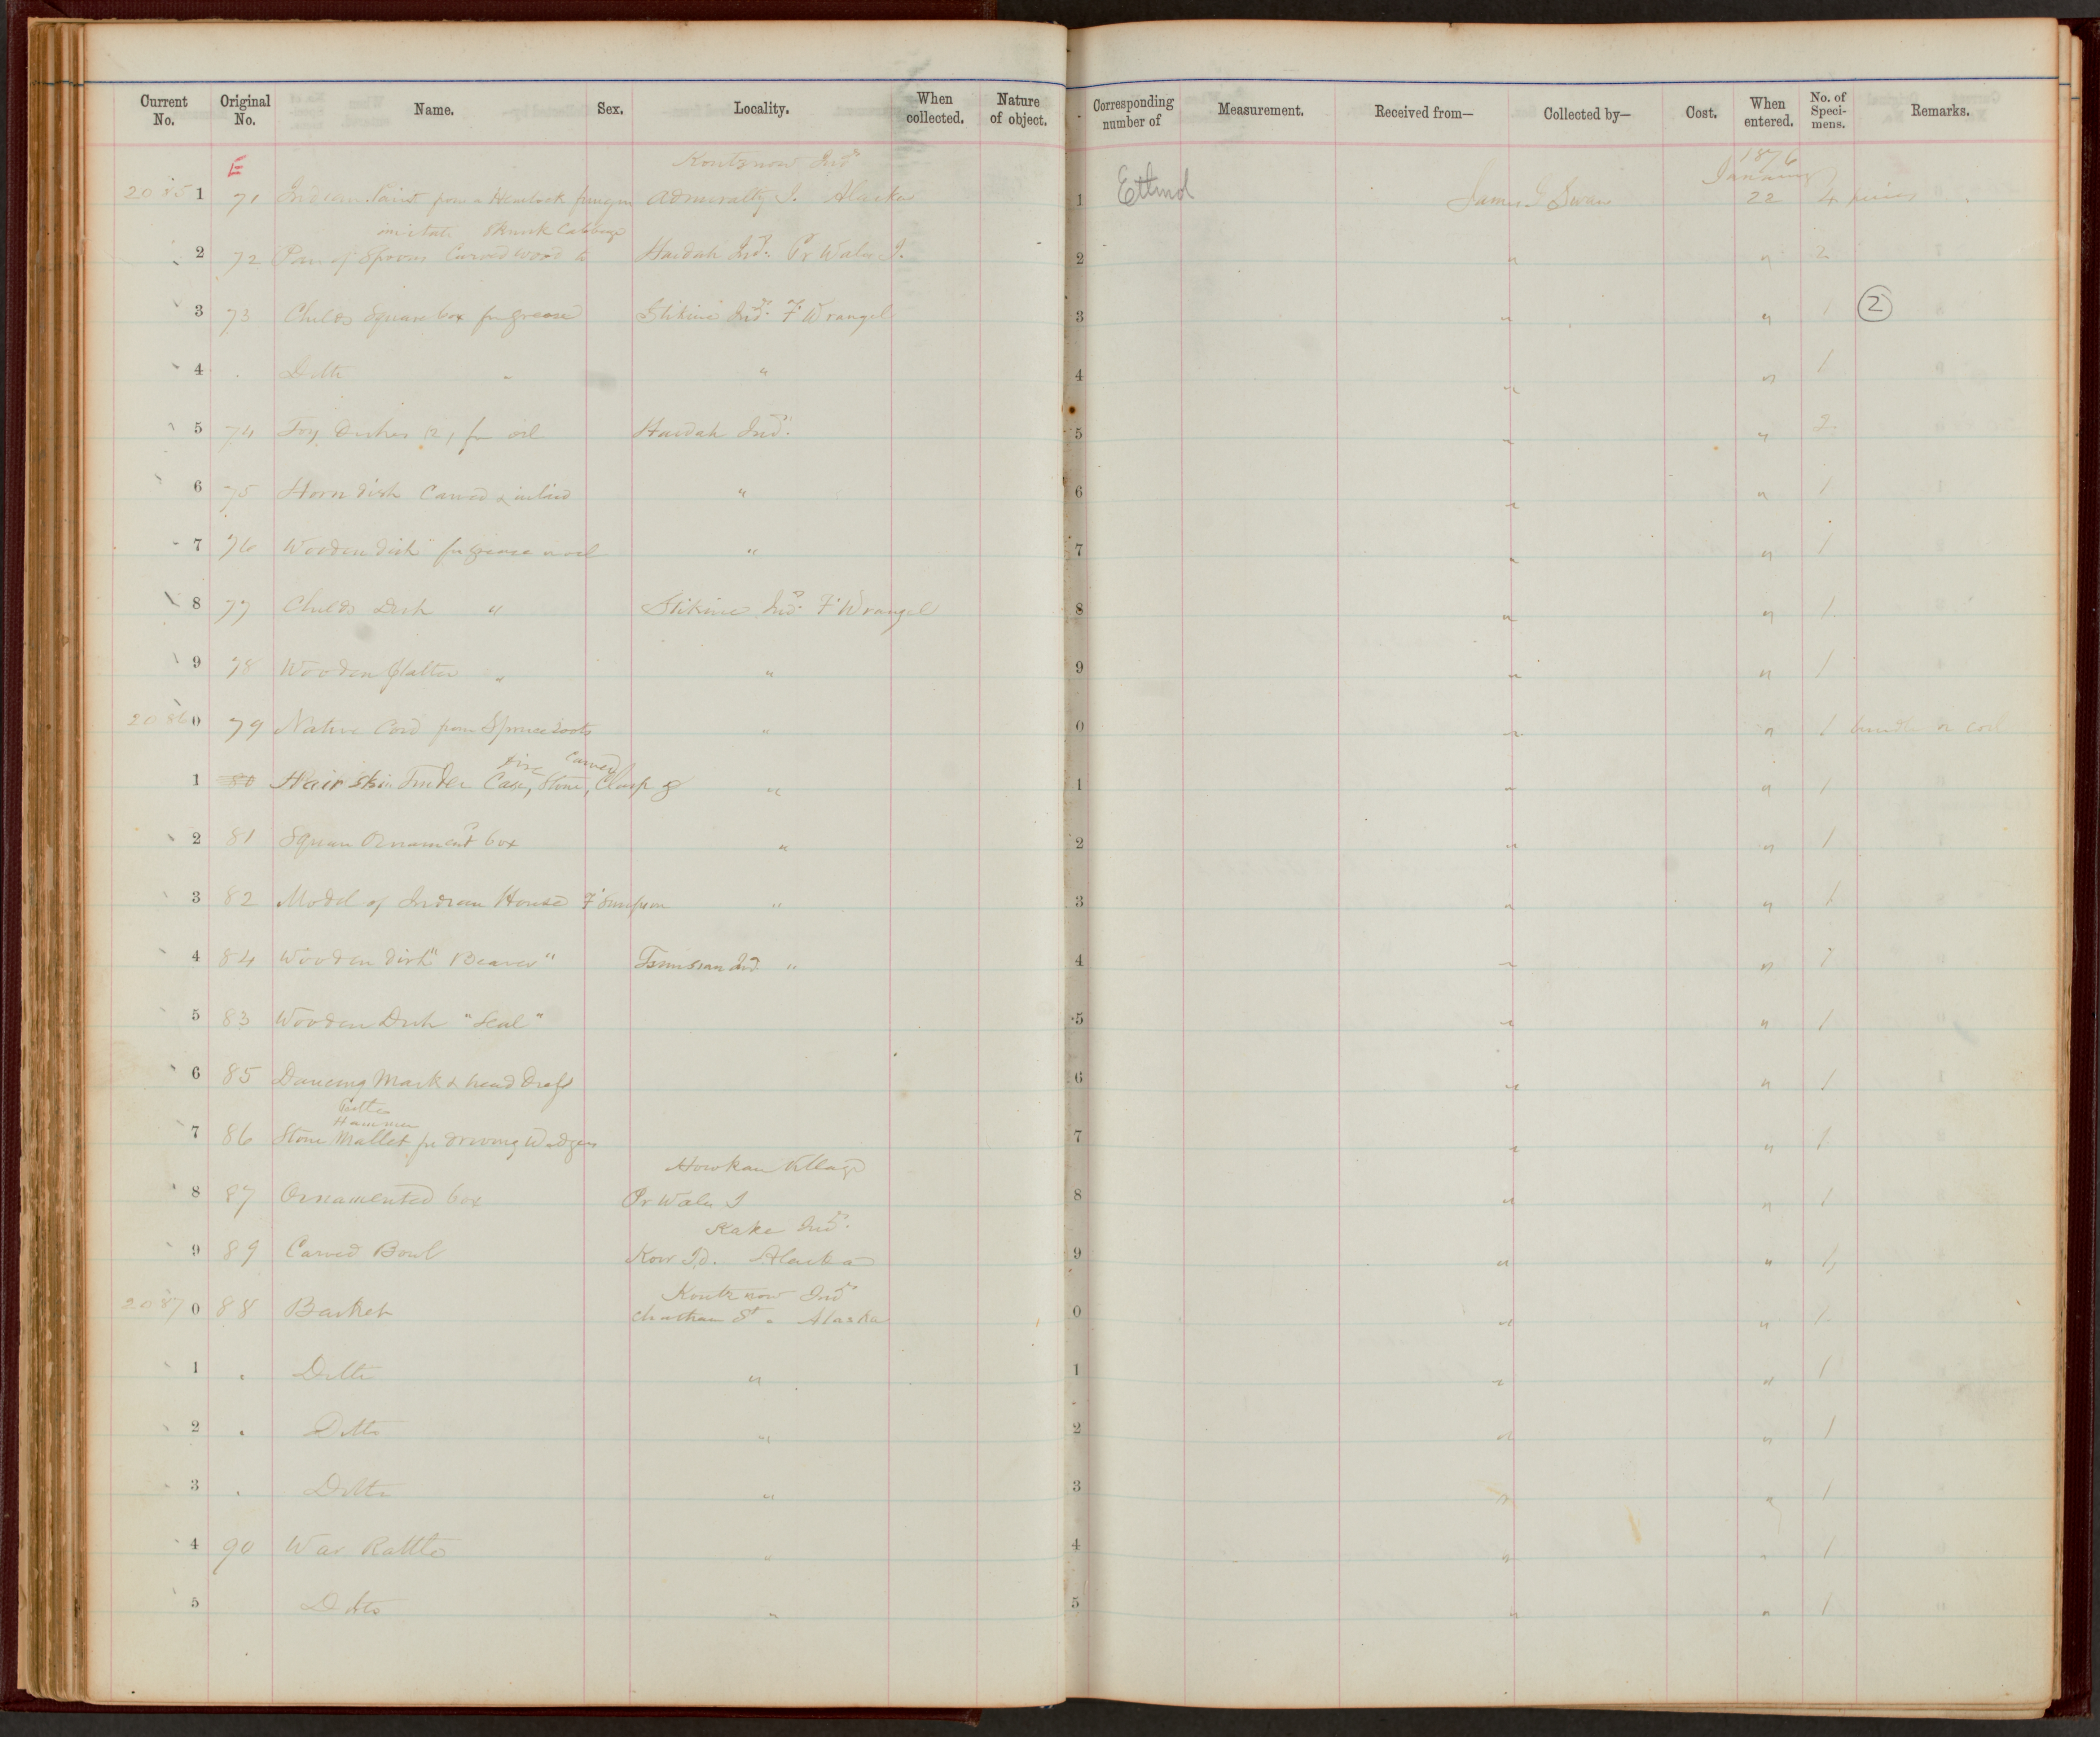 Current No. Original No. Name. Sex. Locality. When collected. Nature of object. Corresponding number of Measurement. Received from— Collected by— Cost. When entered. No. of Speci-mens. Remarks.
E Koutznow Inds 1876
January
2085 1 71 Indian Paint from a Hemlock fungus Admiralty I. Alaska 1 Ethnol James G Swan 22 4 pieces
imitate Skunk Cabbage
2 72 Pair of Spoons Carved wood to Haidah Inds. Pr Wales I. 2 " " 2
3 73 Childs Square box for grease Stikine Inds. Ft Wrangel 3 " " 1 2
4 Ditto " " 4 " " 1
5 74 Toy Dishes (2) for oil Haidah Inds. 5 " " 2
6 75 Horn dish Carved & inlaid " 6 " " 1
7 76 Wooden dish for grease or oil " 7 " " 1
8 77 Childs Dish " Stikine Inds. Ft Wrangel 8 " " 1
9 78 Wooden platter " " 9 " " 1
2086 0 79 Native Cord from Spruce roots " 0 " " 1 bundle or coil
fire Carved
1 80 Hair skin Tinder Case, Stone, Clasp & " 1 " " 1
2 81 Square Ornamented box " 2 " " 1
3 82 Model of Indian House Ft Simpson " 3 " " 1
4 84 Wooden dish "Beaver" Tsimsian Ind. " 4 " " 1
5 83 Wooden Dish "Seal" 5 " " 1
6 85 Dancing Mask & head Dress 6 " " 1
Hammer
7 86 Stone Mallet for driving Wedges 7 " " 1
Howkan Village
8 87 Ornamented box Pr Wales I 8 " " 1
Kake Inds.
9 89 Carved Bowl Kow Id. Alaska 9 " " 1
Koutznow Inds
2087 0 88 Basket Chatham St. Alaska 0 " " 1
1 Ditto " 1 " " 1
2 Ditto " 2 " " 1
3 Ditto " 3 " " 1
4 90 War Rattle " 4 " " 1
5 Ditto " 5 " " 1